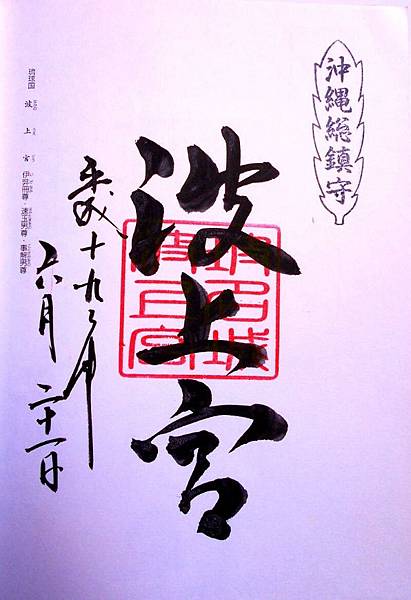 沖縄総鎮守
波上宮
平成十九年
六月二十一日
琉球国 波上宮 伊弉冊尊・速玉男尊・事解男尊